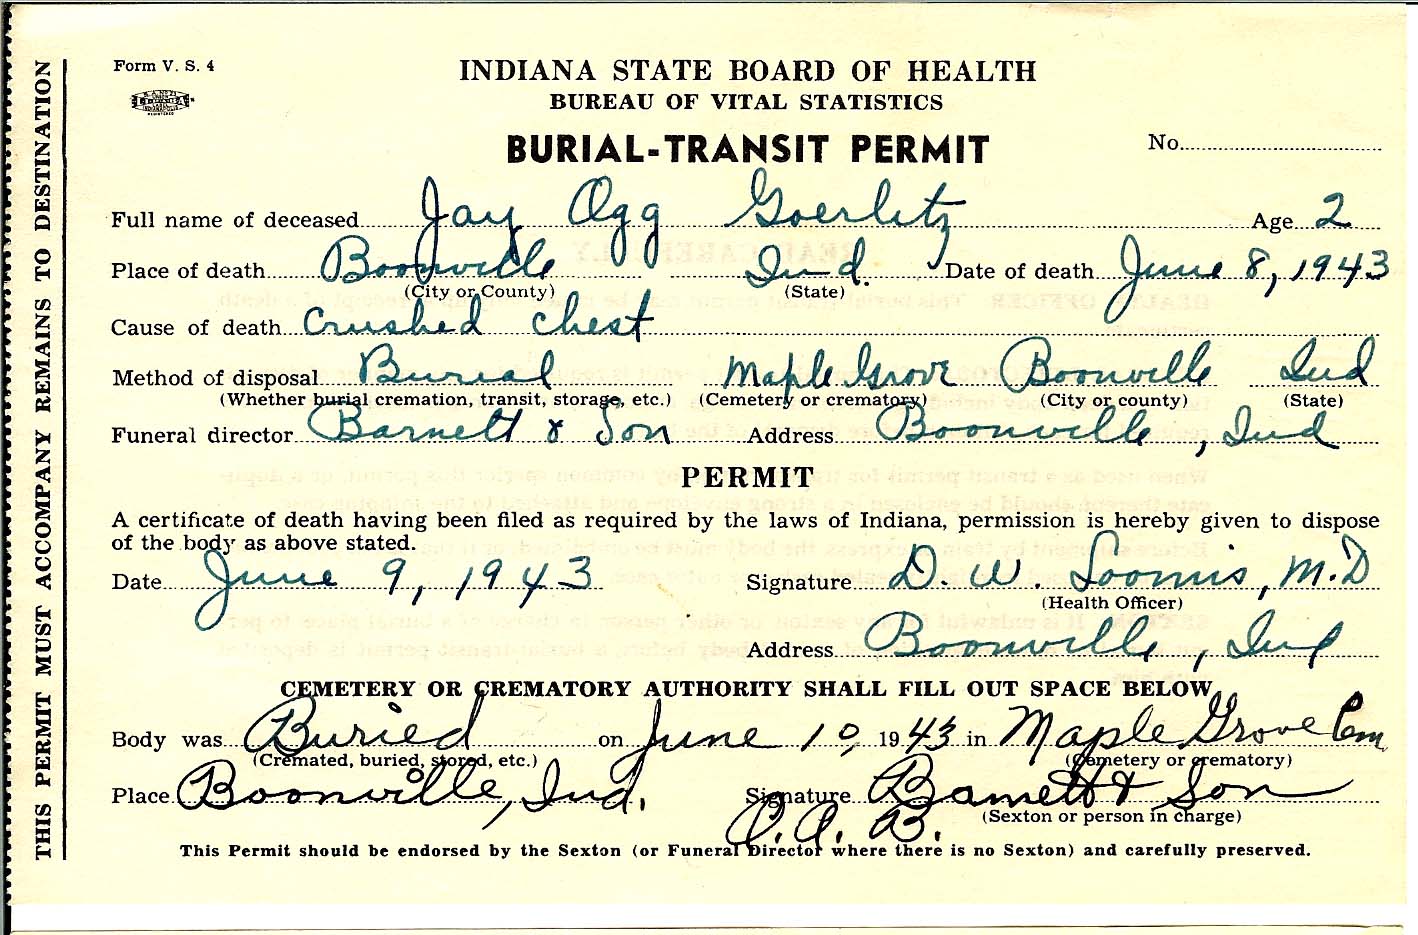 Form V. S. 4
INDIANA STATE BOARD OF HEALTH
BUREAU OF VITAL STATISTICS
BURIAL-TRANSIT PERMIT
No.
Full name of deceased Jay Ogg Goerlitz Age 2
Place of death Boonville Ind. Date of death June 8, 1943
(City or County) (State)
Cause of death Crushed Chest
Method of disposal Burial Maple Grove Boonville Ind
(Whether burial cremation, transit, storage, etc.) (Cemetery or crematory) (City or county) (State)
Funeral director Barnett & Son Address Boonville, Ind
PERMIT
A certificate of death having been filed as required by the laws of Indiana, permission is hereby given to dispose
of the body as above stated.
Date June 9, 1943 Signature D. W. Loomis, M.D
(Health Officer)
Address Boonville, Ind
CEMETERY OR CREMATORY AUTHORITY SHALL FILL OUT SPACE BELOW
Body was Buried on June 10, 1943 in Maple Grove Cem
(Cremated, buried, stored, etc.) (Cemetery or crematory)
Place Boonville, Ind. Signature Barnett & Son
(Sexton or person in charge)
O. A. B.
This Permit should be endorsed by the Sexton (or Funeral Director where there is no Sexton) and carefully preserved.
THIS PERMIT MUST ACCOMPANY REMAINS TO DESTINATION